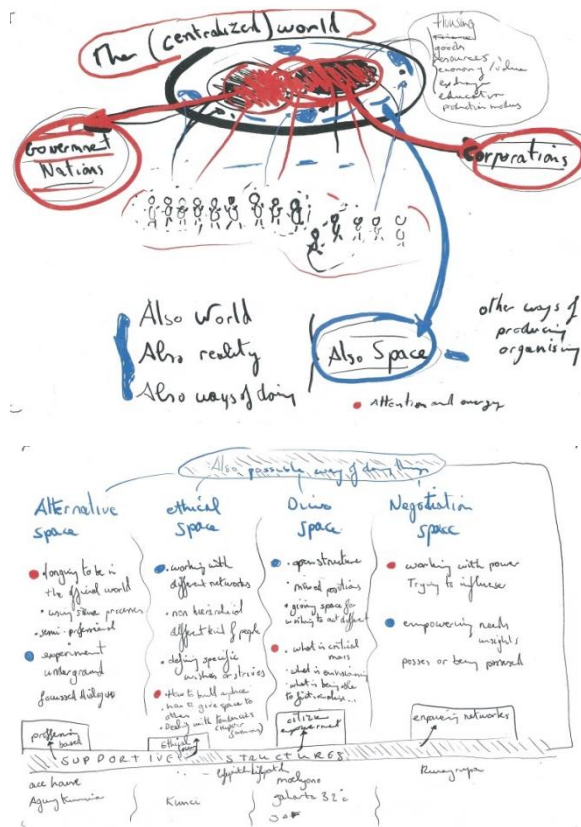 The (centralized) world
Housing
finance
goods
resources
economy / value
exchange
education
production modes
Government
Nations
Corporations
Also world
Also reality
Also ways of doing
Also Space
other ways of
producing
organising
Attention and energy
Also possible way of doing things
Alternative
space
longing to be in
the official world
using same processes
semi-professional
experiment
underground
focussed dialogue
ethical
space
working with
different networks
non hierarchical
different kind of people
defining specific
wishes or strives
How to build a place
how to give space to
others
Dealing with tendencies
space
open structure
mixed positions
giving space for
wanting to act different
what is critical
mass
what is
what is being able
to
Negotiation
space
working with power
Trying to influence
empowering needs
insights
posses or being possessed
based
Ethical
citizen
networks
SUPPORTIVE STRUCTURES
ace house
Kunci
jakarta 32°c
Ruangrupa